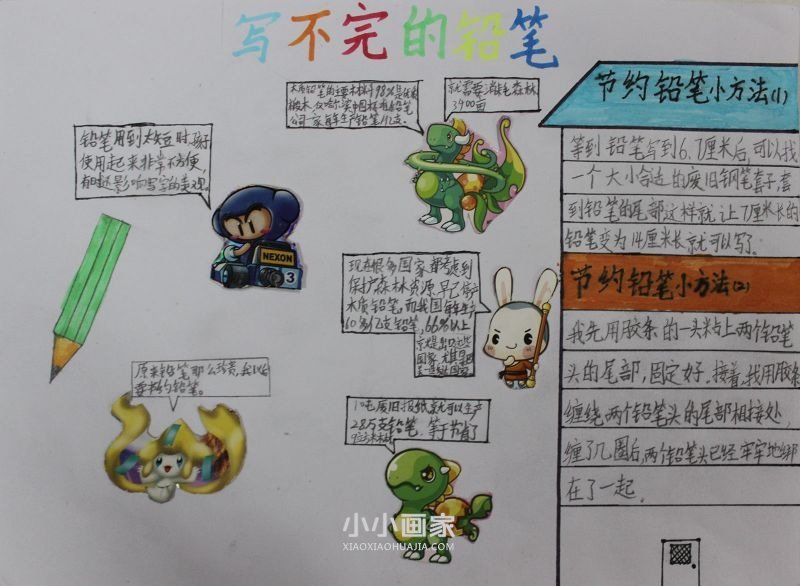 写不完的铅笔
铅笔用到太短时,
使用起来非常不方便,
有时还影响写字的美观。
就需要消耗森林
3400亩
NEXON
3
现在很多国家都考虑到
保护森林资源,早已停产
木质铅笔,而我国每年生产
60多亿支铅笔,66%以上
原来铅笔那么珍贵,我以后
要节约铅笔。
10吨废旧报纸就可以生产
285万支铅笔,等于节省了
节约铅笔小方法(1)
等到铅笔写到6.7厘米后,可以找
一个大小合适的废旧钢笔套子,套
到铅笔的尾部这样就让7厘米长的
铅笔变为14厘米长就可以写了。
节约铅笔小方法(2)
我先用胶条的一头粘上两个铅笔
头的尾部,固定好。接着,我用胶条
缠绕两个铅笔头的尾部相接处
缠了几圈后,两个铅笔头已经牢牢地绑
在了一起。
小小画家
XIAOXIAOHUAJIA.COM